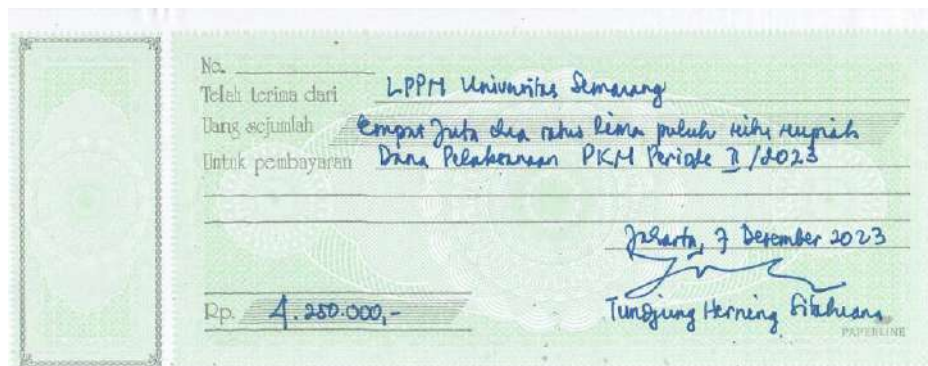 No.
Telah terima dari LPPM Universitas Semarang
Uang sejumlah Empat Juta dua ratus lima puluh ribu rupiah
Untuk pembayaran Dana Pelaksanaan PKM Periode II /2023
Jakarta, 7 Desember 2023
Rp. 4.250.000,-
Tundjung Herning Sitabuana
PAPERLINE